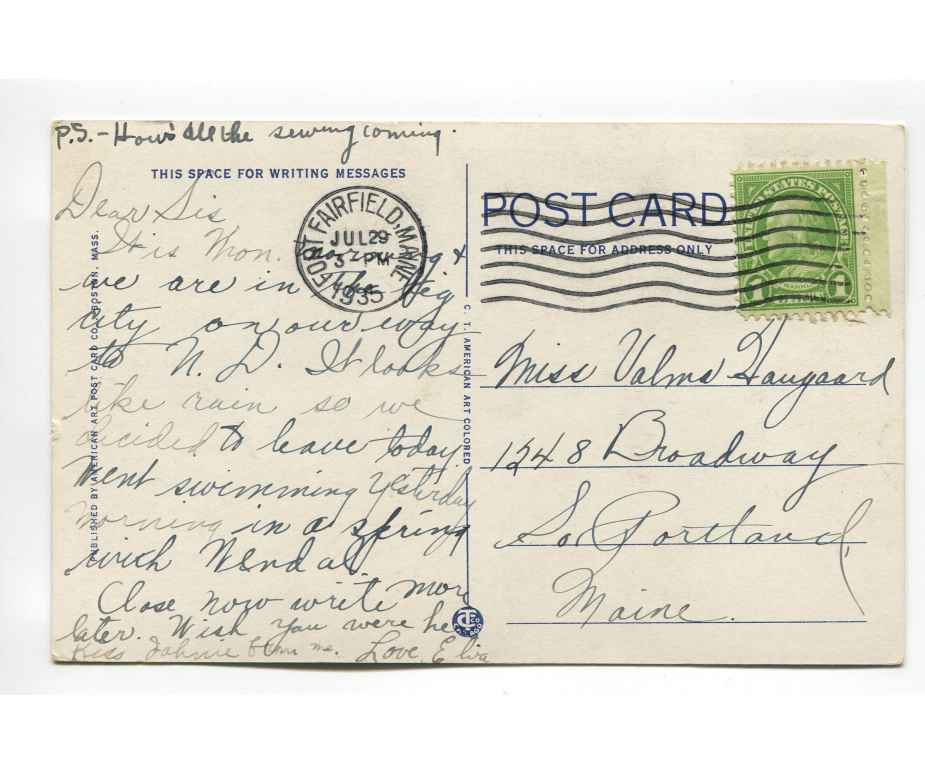 P.S.- How's all the sewing coming.
THIS SPACE FOR WRITING MESSAGES
Dear Sis
It is Mon. &
we are in the big
city on our way
to N. D. It looks
like rain so we
decided to leave today
Went swimming yesterday
morning in a spring
with Wendal
Close now write more
later. Wish you were he
Kiss Johnie for me. Love, Elva
PUBLISHED BY AMERICAN ART POST CARD CO., BOSTON, MASS.
FORT FAIRFIELD, MAINE
JUL 29
3 - PM
1935
C. T. AMERICAN ART COLORED
POST CARD
THIS SPACE FOR ADDRESS ONLY
UNITED STATES POSTAGE
Miss Valma Haugaard
1248 Broadway
So. Portland,
Maine.